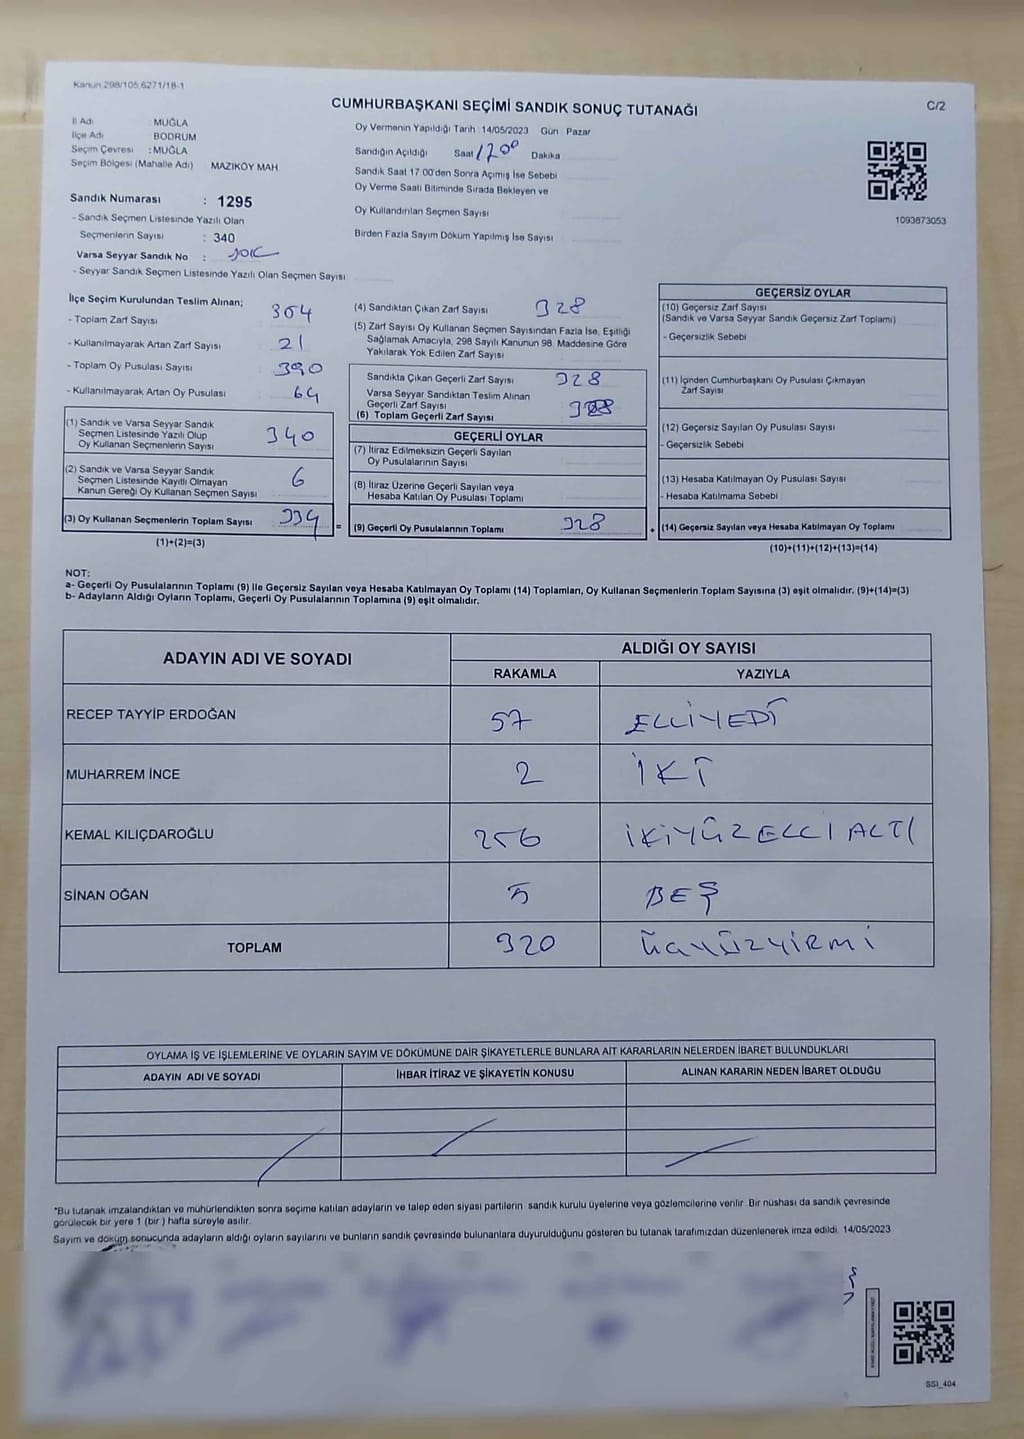 Kanun.298/105.6271/18-1
CUMHURBAŞKANI SEÇİMİ SANDIK SONUÇ TUTANAĞI
C/2
İl Adı : MUĞLA
İlçe Adı : BODRUM
Seçim Çevresi : MUĞLA
Seçim Bölgesi (Mahalle Adı) MAZIKÖY MAH
Sandık Numarası : 1295
- Sandık Seçmen Listesinde Yazılı Olan
Seçmenlerin Sayısı : 340
Varsa Seyyar Sandık No : YOK
- Seyyar Sandık Seçmen Listesinde Yazılı Olan Seçmen Sayısı
Oy Vermenin Yapıldığı Tarih : 14/05/2023 Gün : Pazar
Sandığın Açıldığı Saat 1700 Dakika
Sandık Saat 17.00'den Sonra Açımış İse Sebebi
Oy Verme Saati Bitiminde Sırada Bekleyen ve
Oy Kullandırılan Seçmen Sayısı
Birden Fazla Sayım Döküm Yapılmış İse Sayısı
1093873053
İlçe Seçim Kurulundan Teslim Alınan;
- Toplam Zarf Sayısı 354
- Kullanılmayarak Artan Zarf Sayısı 21
- Toplam Oy Pusulası Sayısı 390
- Kullanılmayarak Artan Oy Pusulası 64
(1) Sandık ve Varsa Seyyar Sandık
Seçmen Listesinde Yazılı Olup
Oy Kullanan Seçmenlerin Sayısı 340
(2) Sandık ve Varsa Seyyar Sandık
Seçmen Listesinde Kayıtlı Olmayan
Kanun Gereği Oy Kullanan Seçmen Sayısı 6
(3) Oy Kullanan Seçmenlerin Toplam Sayısı 334 =
(1)+(2)=(3)
(4) Sandıktan Çıkan Zarf Sayısı 328
(5) Zarf Sayısı Oy Kullanan Seçmen Sayısından Fazla İse, Eşitliği
Sağlamak Amacıyla, 298 Sayılı Kanunun 98. Maddesine Göre
Yakılarak Yok Edilen Zarf Sayısı
Sandıkta Çıkan Geçerli Zarf Sayısı 328
Varsa Seyyar Sandıktan Teslim Alınan
Geçerli Zarf Sayısı
(6) Toplam Geçerli Zarf Sayısı 328
GEÇERLİ OYLAR
(7) İtiraz Edilmeksizin Geçerli Sayılan
Oy Pusulalarının Sayısı
(8) İtiraz Üzerine Geçerli Sayılan veya
Hesaba Katılan Oy Pusulası Toplamı
(9) Geçerli Oy Pusulalarının Toplamı 328 +
GEÇERSİZ OYLAR
(10) Geçersiz Zarf Sayısı
(Sandık ve Varsa Seyyar Sandık Geçersiz Zarf Toplamı)
- Geçersizlik Sebebi
(11) İçinden Cumhurbaşkanı Oy Pusulası Çıkmayan
Zarf Sayısı
(12) Geçersiz Sayılan Oy Pusulası Sayısı
- Geçersizlik Sebebi
(13) Hesaba Katılmayan Oy Pusulası Sayısı
- Hesaba Katılmama Sebebi
(14) Geçersiz Sayılan veya Hesaba Katılmayan Oy Toplamı
(10)+(11)+(12)+(13)=(14)
NOT:
a- Geçerli Oy Pusulalarının Toplamı (9) ile Geçersiz Sayılan veya Hesaba Katılmayan Oy Toplamı (14) Toplamları, Oy Kullanan Seçmenlerin Toplam Sayısına (3) eşit olmalıdır. (9)+(14)=(3)
b- Adayların Aldığı Oyların Toplamı, Geçerli Oy Pusulalarının Toplamına (9) eşit olmalıdır.
ADAYIN ADI VE SOYADI
ALDIĞI OY SAYISI
RAKAMLA YAZIYLA
RECEP TAYYİP ERDOĞAN 57 ELLİYEDİ
MUHARREM İNCE 2 İKİ
KEMAL KILIÇDAROĞLU 256 İKİYÜZELLİALTI
SİNAN OĞAN 5 BEŞ
TOPLAM 320 ÜÇYÜZYİRMİ
OYLAMA İŞ VE İŞLEMLERİNE VE OYLARIN SAYIM VE DÖKÜMÜNE DAİR ŞİKAYETLERLE BUNLARA AİT KARARLARIN NELERDEN İBARET BULUNDUKLARI
ADAYIN ADI VE SOYADI İHBAR İTİRAZ VE ŞİKAYETİN KONUSU ALINAN KARARIN NEDEN İBARET OLDUĞU
*Bu tutanak imzalandıktan ve mühürlendikten sonra seçime katılan adayların ve talep eden siyasi partilerin sandık kurulu üyelerine veya gözlemcilerine verilir. Bir nüshası da sandık çevresinde
görülecek bir yere 1 (bir ) hafta süreyle asılır.
Sayım ve döküm sonucunda adayların aldığı oyların sayılarını ve bunların sandık çevresinde bulunanlara duyurulduğunu gösteren bu tutanak tarafımızdan düzenlenerek imza edildi. 14/05/2023
SSI_404